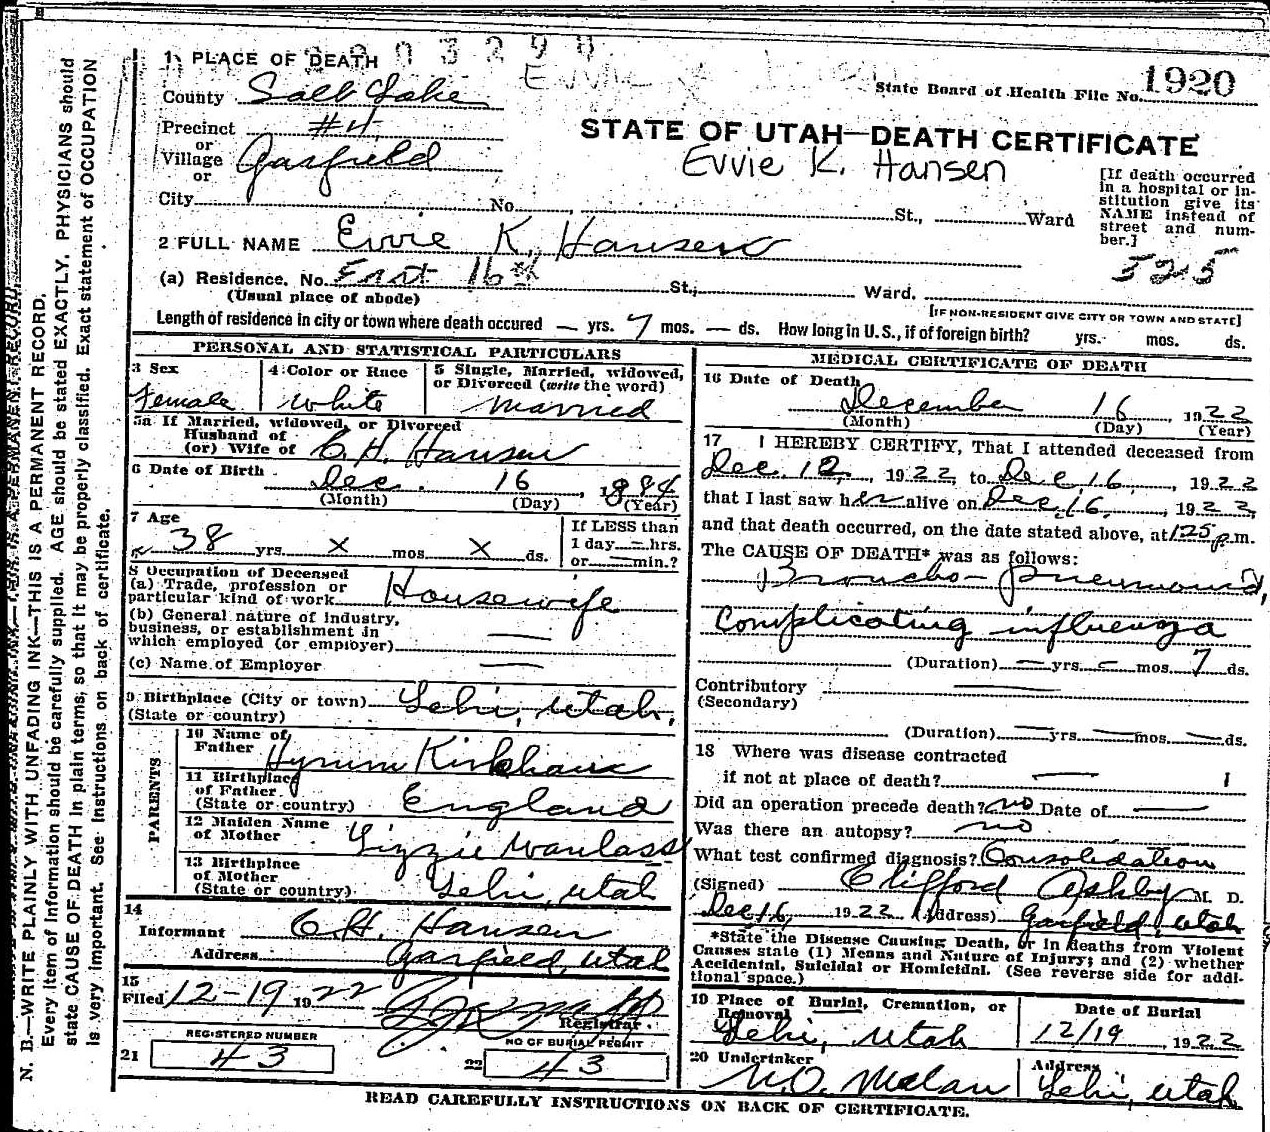 1 PLACE OF DEATH
County Salt Lake
State Board of Health File No. 1920
Precinct #4
or
Village Garfield
or
STATE OF UTAH—DEATH CERTIFICATE
Evvie K. Hansen
City No. St., Ward
[If death occurred in a hospital or institution give its NAME instead of street and number.]
2 FULL NAME Evvie K. Hansen
525
(a) Residence. No. East 16th St., Ward.
(Usual place of abode)
[IF NON-RESIDENT GIVE CITY OR TOWN AND STATE]
Length of residence in city or town where death occured — yrs. 7 mos. — ds. How long in U.S., if of foreign birth? yrs. mos. ds.
PERSONAL AND STATISTICAL PARTICULARS
3 Sex
Female
4 Color or Race
White
5 Single, Married, widowed, or Divorced (write the word)
Married
5a If Married, widowed, or Divorced
Husband of
(or) Wife of C. H. Hansen
6 Date of Birth Dec. 16, 1884
(Month) (Day) (Year)
7 Age
38 yrs. x mos. x ds.
If LESS than
1 day — hrs.
or — min.?
8 Occupation of Deceased
(a) Trade, profession or
particular kind of work Housewife
(b) General nature of industry,
business, or establishment in
which employed (or employer) —
(c) Name of Employer —
9 Birthplace (City or town) Lehi, Utah.
(State or country)
PARENTS
10 Name of
Father Hyrum Kirkham
11 Birthplace
of Father
(State or country) England
12 Maiden Name
of Mother Lizzie Wanlass
13 Birthplace
of Mother
(State or country) Lehi, Utah
14
Informant C. H. Hansen
Address Garfield, Utah
15
Filed 12-19 1922
Registrar.
REGISTERED NUMBER
21 43
NO OF BURIAL PERMIT
22 43
MEDICAL CERTIFICATE OF DEATH
16 Date of Death
December 16, 1922
(Month) (Day) (Year)
17 I HEREBY CERTIFY, That I attended deceased from
Dec. 12, 1922 to Dec. 16, 1922
that I last saw her alive on Dec. 16, 1922,
and that death occurred, on the date stated above, at 125 p.m.
The CAUSE OF DEATH* was as follows:
Broncho-pneumonia,
Complicating influenza
(Duration) — yrs. — mos. 7 ds.
Contributory —
(Secondary)
(Duration) — yrs. — mos. — ds.
18 Where was disease contracted
if not at place of death? —
Did an operation precede death? no Date of —
Was there an autopsy? no
What test confirmed diagnosis? Consolidation
(Signed) Clifford Ashby M. D.
Dec 16, 1922 (Address) Garfield, Utah
*State the Disease Causing Death, or in deaths from Violent
Causes state (1) Means and Nature of Injury; and (2) whether
Accidental, Suicidal or Homicidal. (See reverse side for addi-
tional space.)
19 Place of Burial, Cremation, or
Removal
Lehi, Utah
Date of Burial
12/19, 1922
20 Undertaker
N. O. Malan
Address
Lehi, Utah
READ CAREFULLY INSTRUCTIONS ON BACK OF CERTIFICATE.
N. B.—WRITE PLAINLY WITH UNFADING INK—THIS IS A PERMANENT RECORD.
Every item of information should be carefully supplied. AGE should be stated EXACTLY. PHYSICIANS should
state CAUSE OF DEATH in plain terms, so that it may be properly classified. Exact statement of OCCUPATION
is very important. See instructions on back of certificate.